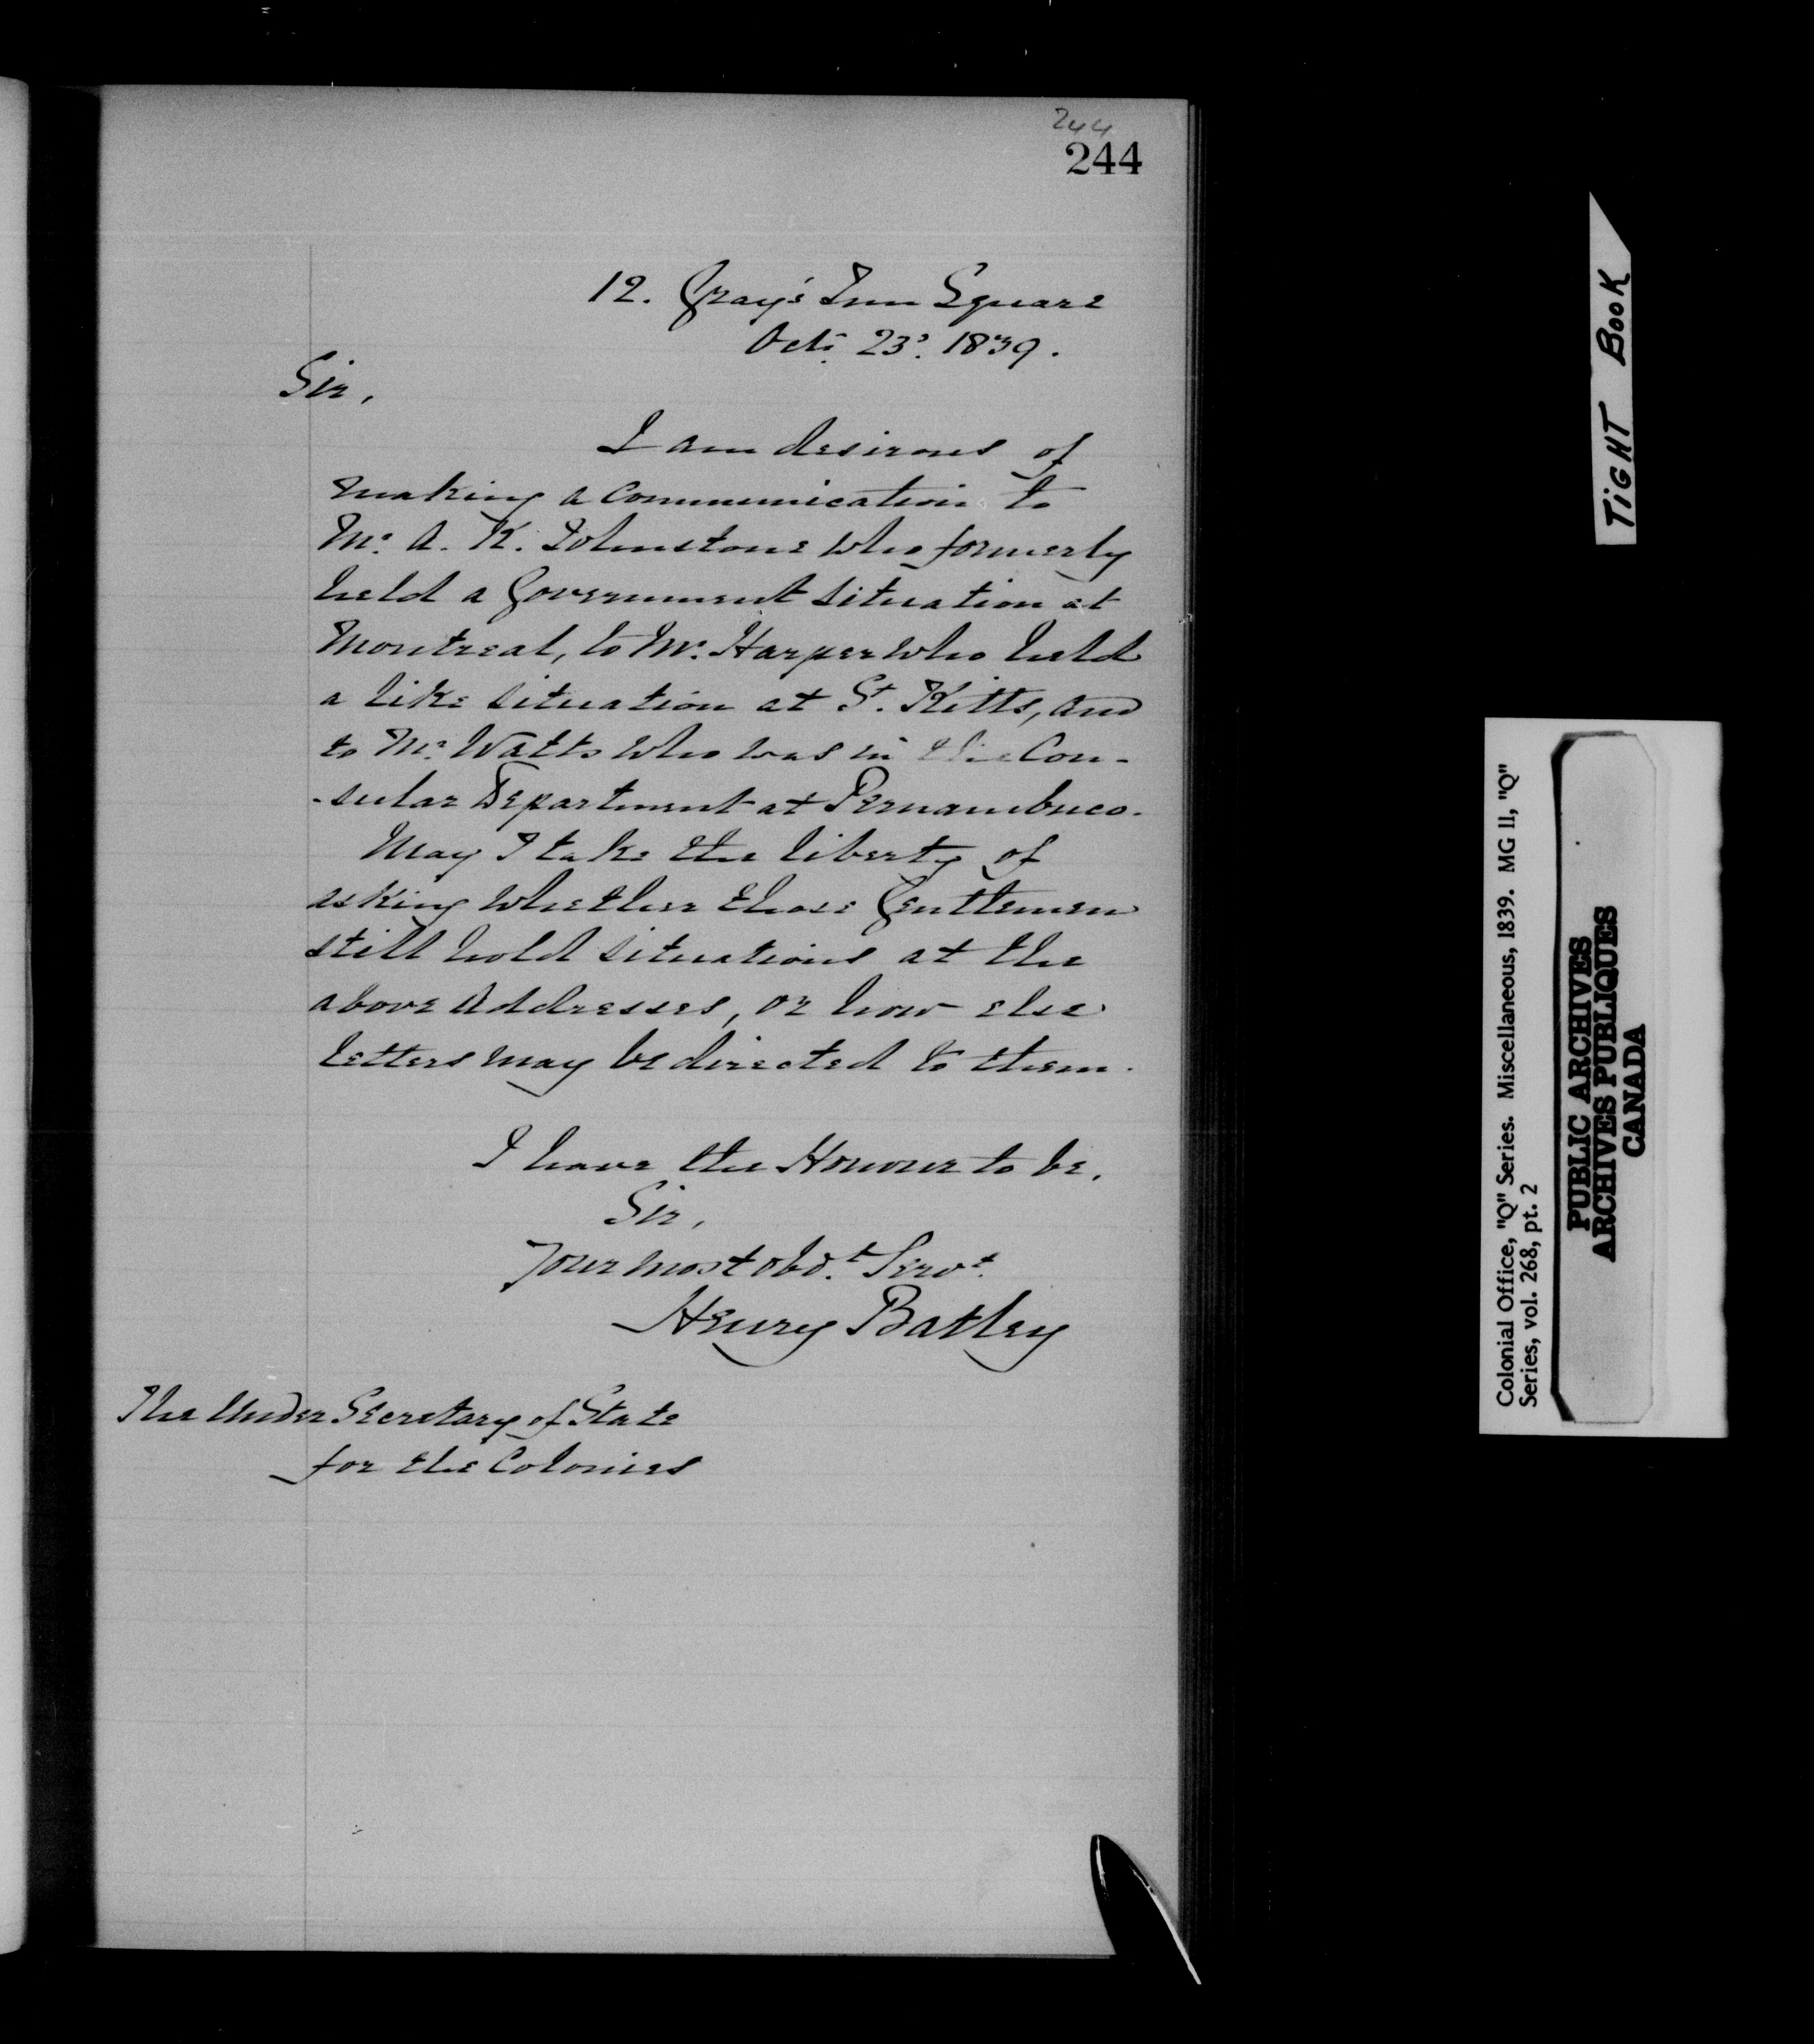 244
244
12. Gray's Inn Square
Octr. 23d. 1839.
Sir,
I am desirous of
making a communication to
Mr. A. K. Johnstone who formerly
held a Government situation at
Montreal, to Mr. Harper who held
a like situation at St. Kitts, and
to Mr. Watts who was in the Con-
-sular Department at Pernambuco.
May I take the liberty of
asking whether those Gentlemen
still hold situations at the
above Addresses, or how else
letters may be directed to them.
I have the Honour to be,
Sir,
Your most obdt. Servt.
Henry Batley
The Under Secretary of State
for the Colonies
TIGHT BOOK
Colonial Office, "Q" Series. Miscellaneous, 1839. MG 11, "Q"
Series, vol. 268, pt. 2
PUBLIC ARCHIVES
ARCHIVES PUBLIQUES
CANADA